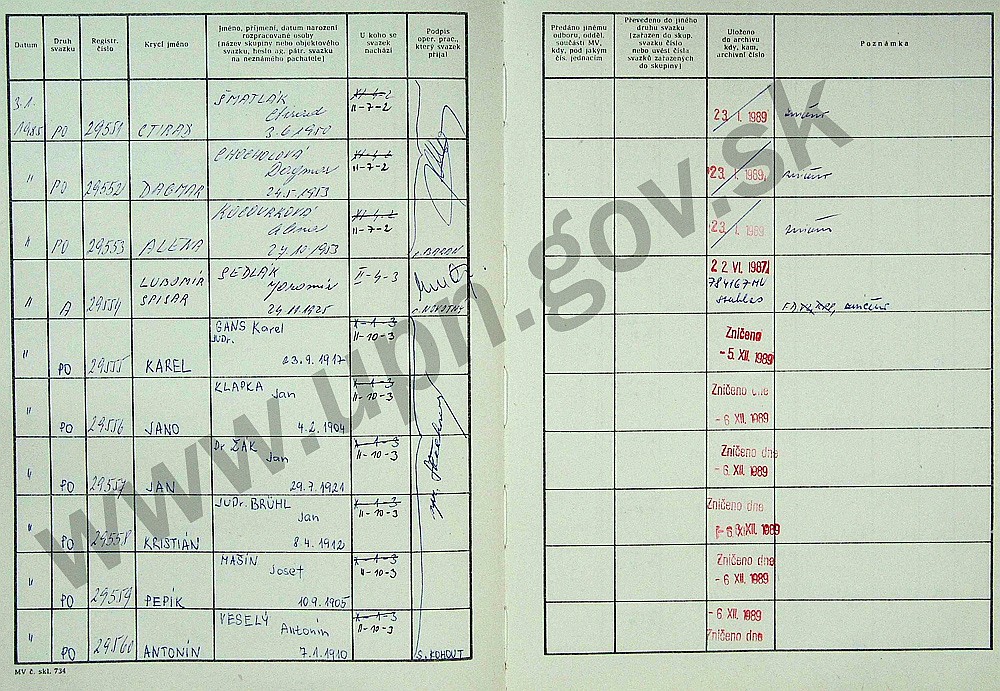 Datum
Druh
svazku
Registr.
číslo
Krycí jméno
Jméno, příjmení, datum narození
rozpracované osoby
(název skupiny nebo objektového
svazku, heslo ag. pátr. svazku
na neznámého pachatele)
U koho se
svazek
nachází
Podpis
oper. prac.,
který svazek
přijal
Předáno jinému
odboru, odděl.
součásti MV,
kdy, pod jakým
čís. jednacím
Převedeno do jiného
druhu svazku
(zařazen do skup.
svazku číslo
nebo uvést čísla
svazků zařazených
do skupiny)
Uloženo
do archivu
kdy, kam,
archivní číslo
Poznámka
3.1.
1985 PO 29551 CTIRAD
ŠMATLÁK
Ctirad
3.6.1950
XI-4-2
II-7-2
23. I. 1989
zničeno
" PO 29552 DAGMAR
CHOCHOLOVÁ
Dagmar
24.5.1953
XI-4-2
II-7-2
23. I. 1989
zničeno
" PO 29553 ALENA
KOCOURKOVÁ
Alena
27.10.1953
XI-4-2
II-7-2
s. BARAN
23. I. 1989
zničeno
" A 29554
LUBOMÍR
SPISAR
SEDLÁK
Jaromír
24.11.1925
II-4-3
s. NOVOTNÝ
22. VI. 1987
784167 MV
zničeno
" PO 29555 KAREL
GANS Karel
JUDr.
23.9.1917
X-1-3
II-10-3
Zničeno
-5. XII. 1989
" PO 29556 JANO
KLAPKA
Jan
4.2.1904
X-1-3
II-10-3
Zničeno dne
-6 XII. 1989
" PO 29557 JAN
Dr ŽÁK
Jan
29.7.1921
X-1-3
II-10-3
Zničeno dne
-6 XII. 1989
" PO 29558 KRISTIÁN
JUDr. BRÜHL
Jan
8.4.1912
X-1-3
II-10-3
Zničeno dne
-6 XII. 1989
" PO 29559 PEPÍK
MAŠÍN
Josef
10.9.1905
X-1-3
II-10-3
Zničeno dne
-6 XII. 1989
" PO 29560 ANTONÍN
VESELÝ
Antonín
7.1.1910
X-1-3
II-10-3
S. KOHOUT
-6 XII. 1989
Zničeno dne
MV č. skl. 734
www.upn.gov.sk